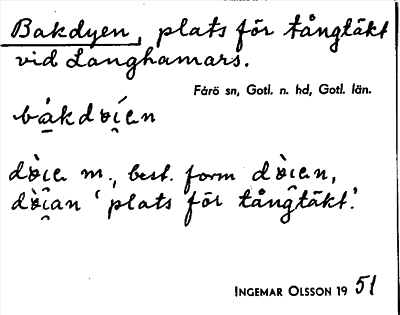 Bakdyen, plats för tångtäkt
vid Langhamars.
Fårö sn, Gotl. n. hd, Gotl. län.
m., best. form
'plats för tångtäkt'.
INGEMAR OLSSON 19 51